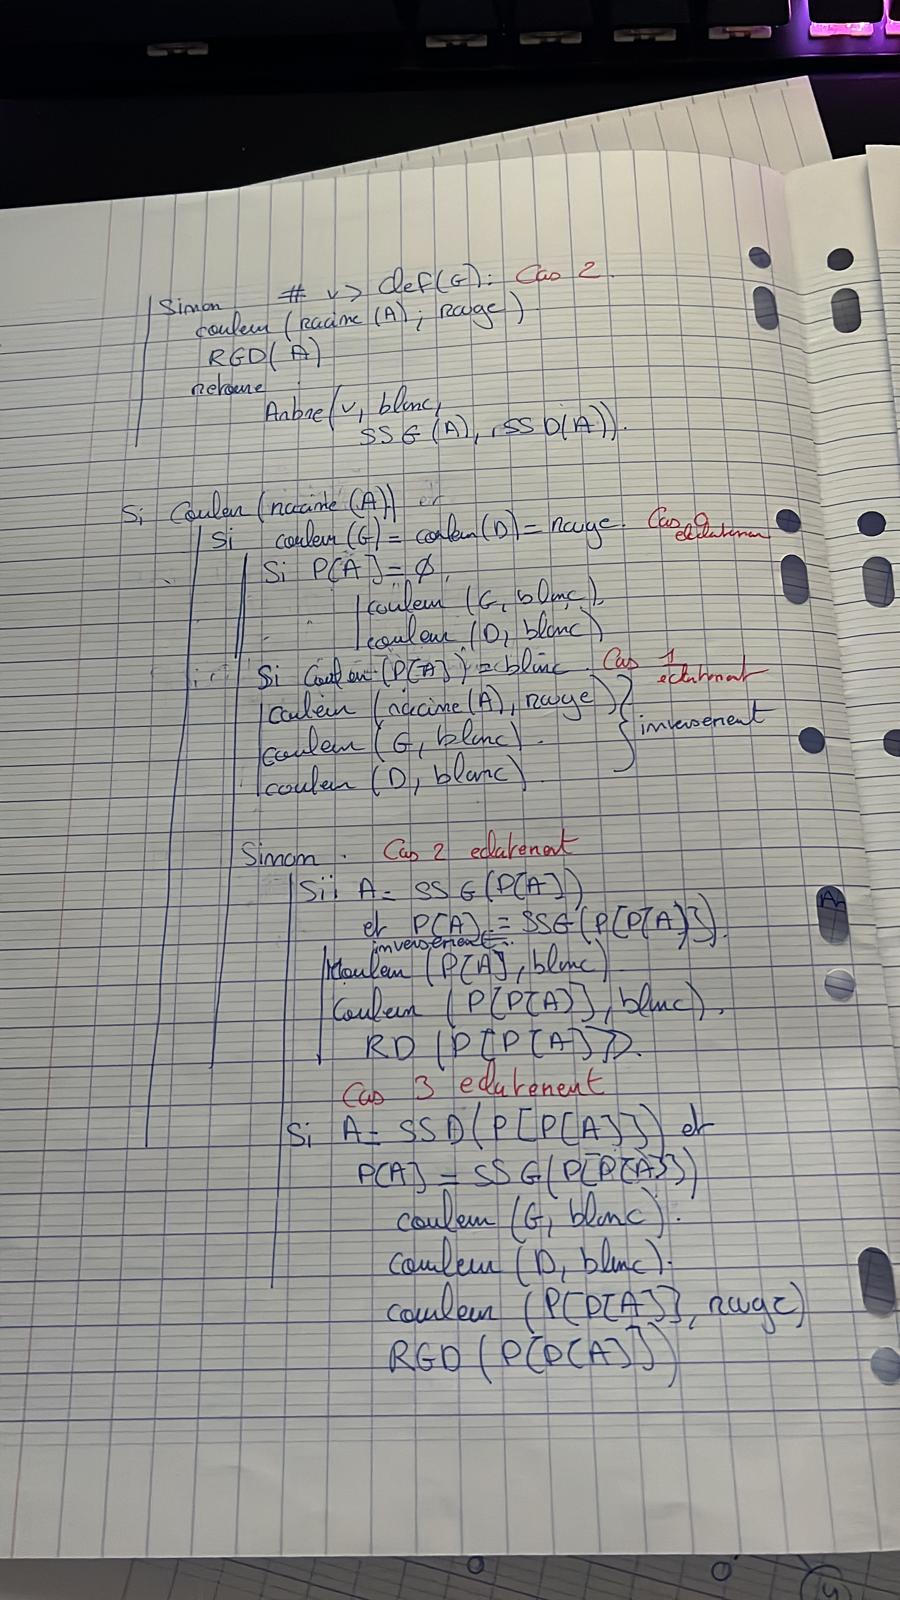 Sinon # v > clef(G): Cas 2.
couleur (racine (A), rouge)
RGD(A)
retourne
Arbre(v, blanc,
SSG(A), SSD(A)).
Si Couleur (racine (A)) et
Si couleur (G) = couleur (D) = rouge. Cas 0 eclatement
Si P[A] = ∅
couleur (G, blanc)
couleur (D, blanc)
Si Couleur (P[A]) = blanc. Cas 1 eclatement
couleur (racine(A), rouge)
couleur (G, blanc). } inversement
couleur (D, blanc)
Sinon. Cas 2 eclatement
Sii A = SSG(P[A])
et P[A] = SSG(P[P[A]])
inversement
Couleur (P[A], blanc)
Couleur (P[P[A]], blanc).
RD (P[P[A]]).
Cas 3 eclatement
Si A = SSD(P[P[A]]) et
P[A] = SSG(P[P[A]])
couleur (G, blanc).
couleur (D, blanc).
couleur (P[P[A]], rouge)
RGD (P[P[A]])